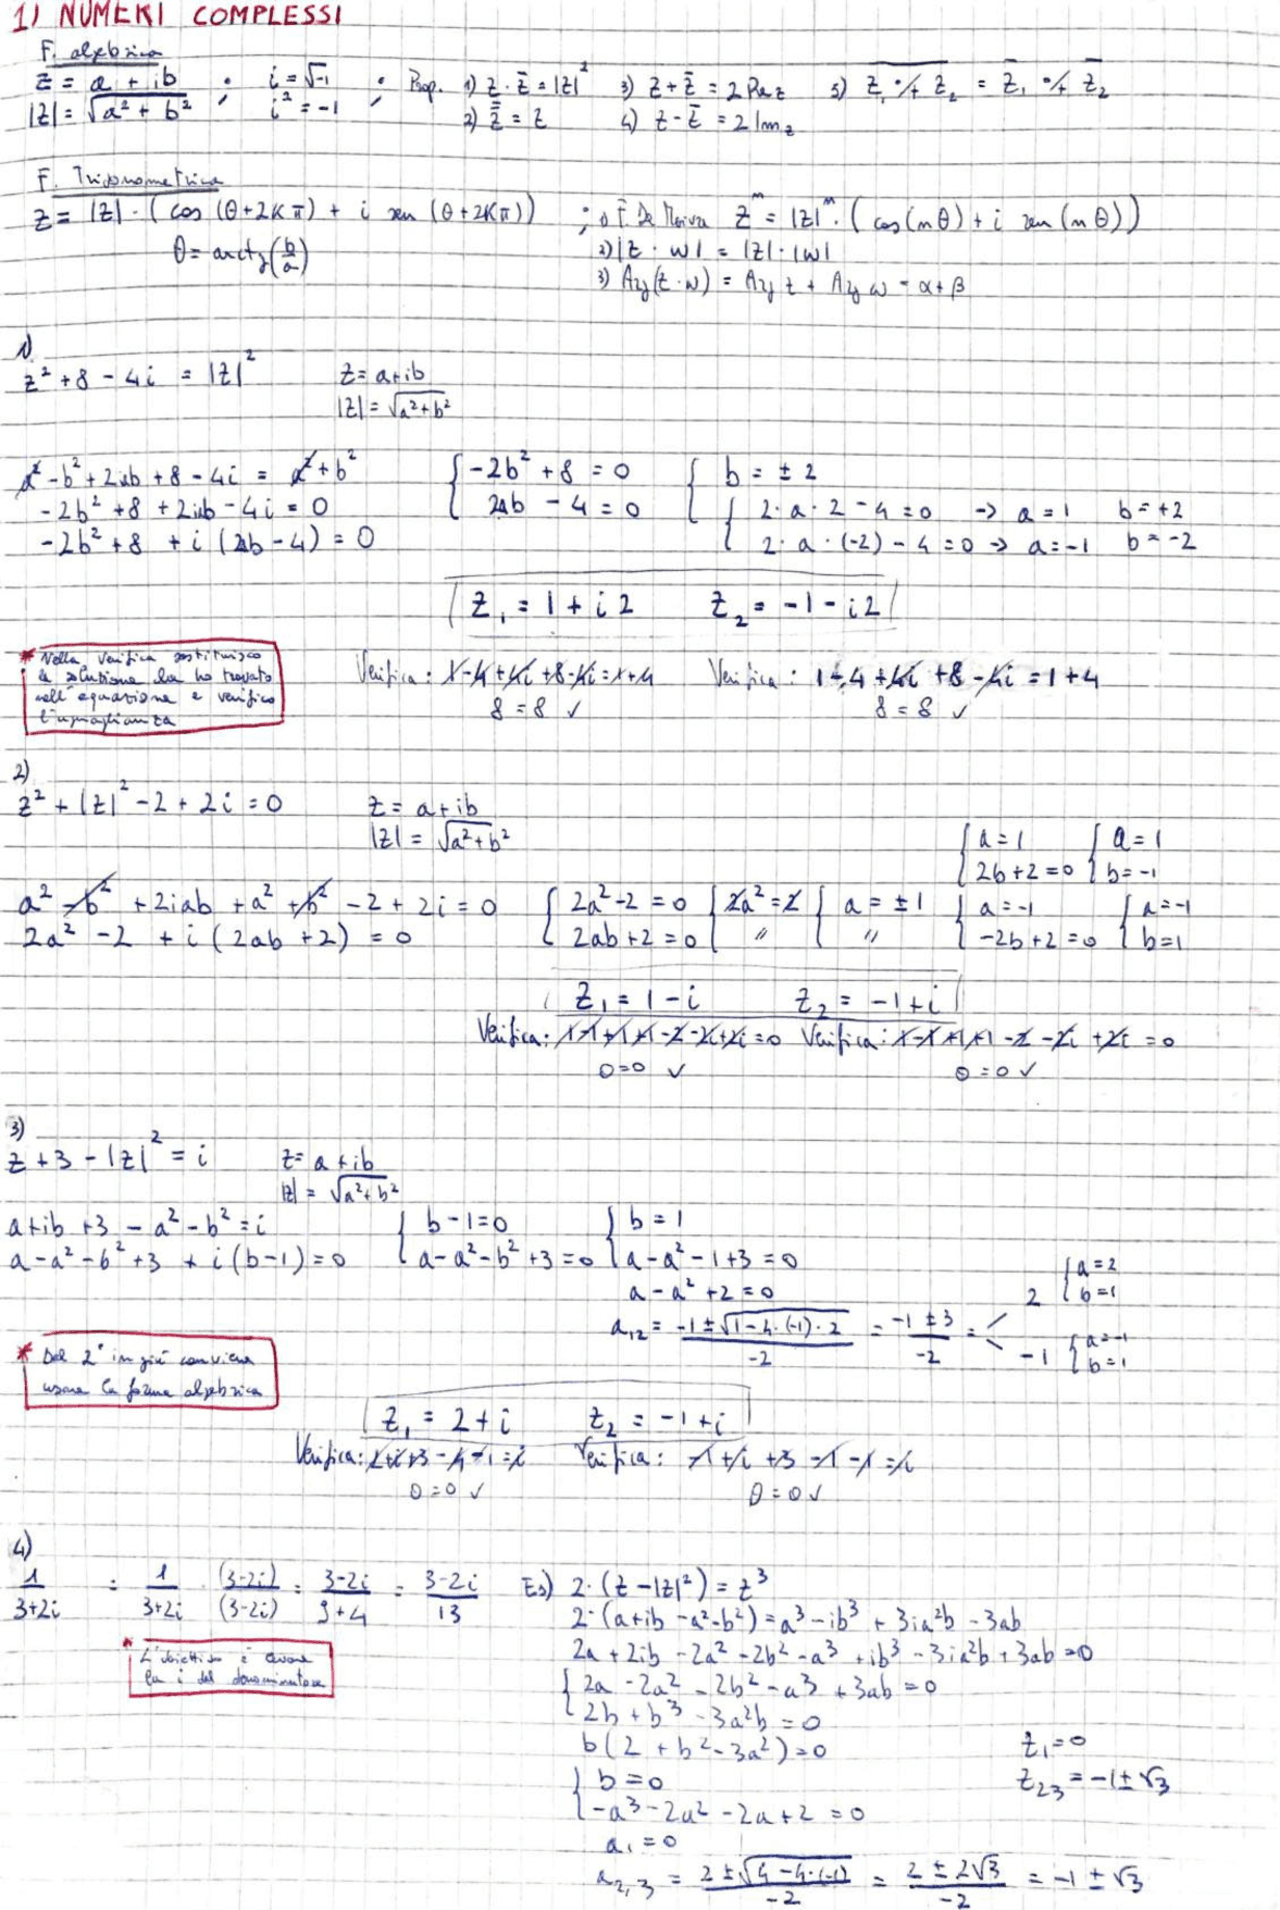 1) NUMERI COMPLESSI
F. algebrica
z = a + ib ; i = √-1 ; Prop. 1) z · z̄ = |z|² 3) z + z̄ = 2 Re z 5) z̄₁ ·/+ z₂ = z̄₁ ·/+ z̄₂
|z| = √(a² + b²) i² = -1 2) z̿ = z 4) z - z̄ = 2 Im z
F. Trigonometrica
z = |z| · (cos (θ+2Kπ) + i sen (θ+2Kπ)) ; 1) F. De Moivre zⁿ = |z|ⁿ · (cos(nθ) + i sen(nθ))
θ = arctg(b/a) 2) |z · w| = |z| · |w|
3) Arg(z · w) = Arg z + Arg w = α + β
1)
z² + 8 - 4i = |z|² z = a + ib
|z| = √(a² + b²)
a² - b² + 2iab + 8 - 4i = a² + b² { -2b² + 8 = 0 { b = ± 2
-2b² + 8 + 2iab - 4i = 0 2ab - 4 = 0 { 2 · a · 2 - 4 = 0 -> a = 1 b = +2
-2b² + 8 + i (2ab - 4) = 0 2 · a · (-2) - 4 = 0 -> a = -1 b = -2
z₁ = 1 + i 2 z₂ = -1 - i 2
* Nella verifica sostituisco
la soluzione che ho trovato
nell'equazione e verifico
l'uguaglianza
Verifica: 1 - 4 + 4i + 8 - 4i = 1 + 4 Verifica: 1 - 4 + 4i + 8 - 4i = 1 + 4
8 = 8 ✓ 8 = 8 ✓
2)
z² + |z|² - 2 + 2i = 0 z = a + ib
|z| = √(a² + b²) { a = 1 { a = 1
2b + 2 = 0 b = -1
a² - b² + 2iab + a² + b² - 2 + 2i = 0 { 2a² - 2 = 0 { 2a² = 2 { a = ± 1 { a = -1 { a = -1
2a² - 2 + i (2ab + 2) = 0 2ab + 2 = 0 〃 〃 -2b + 2 = 0 b = 1
z₁ = 1 - i z₂ = -1 + i
Verifica: 1 - 1 + 1 + 1 - 2 - 2i + 2i = 0 Verifica: 1 - 1 + 1 + 1 - 2 - 2i + 2i = 0
0 = 0 ✓ 0 = 0 ✓
3)
z + 3 - |z|² = i z = a + ib
|z| = √(a² + b²)
a + ib + 3 - a² - b² = i { b - 1 = 0 { b = 1
a - a² - b² + 3 + i (b - 1) = 0 a - a² - b² + 3 = 0 a - a² - 1 + 3 = 0
a - a² + 2 = 0 2 { a = 2 b = 1
a₁,₂ = (-1 ± √(1 - 4 · (-1) · 2))/-2 = (-1 ± 3)/-2 = < -1 { a = -1 b = 1
* Dal 2° in giù conviene
usare la forma algebrica
z₁ = 2 + i z₂ = -1 + i
Verifica: 2 + i + 3 - 4 - 1 = i Verifica: -1 + i + 3 - 1 - 1 = i
0 = 0 ✓ 0 = 0 ✓
4)
1/(3+2i) = 1/(3+2i) · (3-2i)/(3-2i) = (3-2i)/(9+4) = (3-2i)/13
* L'obiettivo è levare
la i dal denominatore
Es) 2 · (z - |z|²) = z³
2 · (a + ib - a² - b²) = a³ - ib³ + 3ia²b - 3ab
2a + 2ib - 2a² - 2b² - a³ + ib³ - 3ia²b + 3ab = 0
{ 2a - 2a² - 2b² - a³ + 3ab = 0
2b + b³ - 3a²b = 0
b (2 + b² - 3a²) = 0 z₁ = 0
{ b = 0 z₂₃ = -1 ± √3
-a³ - 2a² - 2a + 2 = 0
a₁ = 0
a₂,₃ = (2 ± √(4 - 4 · (-2)))/-2 = (2 ± 2√3)/-2 = -1 ± √3